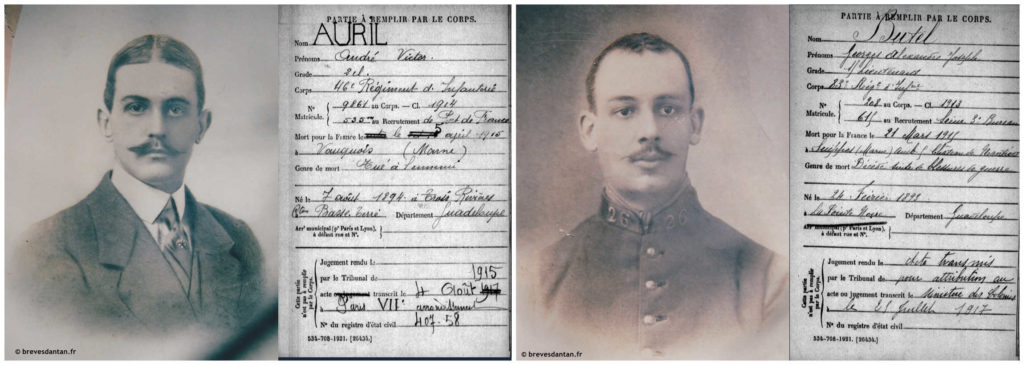 PARTIE À REMPLIR PAR LE CORPS.
Nom AURIL
Prénoms André Victor
Grade 2cl.
Corps 46e Régiment d'Infanterie
N° 9861 au Corps. — Cl. 1914
Matricule. au Recrutement de
Mort pour la France le avril 1915
à Vauquois (Marne)
Genre de mort Tué à l'ennemi
Né le 7 août 1894 à Trois Rivières
Basse Terre Département Guadeloupe
Arrt municipal (pr Paris et Lyon),
à défaut rue et N°.
Cette partie
n'est pas à remplir
par le Corps.
Jugement rendu le
par le Tribunal de 1915
acte ou jugement transcrit le 4 Août 1917
Paris VIIe arrondissement
N° du registre d'état civil 407-58
534-708-1921. [26434.]
© brevesdantan.fr
26 26
PARTIE À REMPLIR PAR LE CORPS.
Nom Butel
Prénoms Georges Alexandre Joseph
Grade S/Lieutenant
Corps
N° 208 au Corps. — Cl. 1913
Matricule. au Recrutement Seine 2e Bureau
Mort pour la France le 21 Mars 1915
à Suippes (Marne)
Genre de mort Décédé suite de blessures de guerre
Né le 24 Février 1893
à La Pointe Noire Département Guadeloupe
Arrt municipal (pr Paris et Lyon),
à défaut rue et N°.
Cette partie
n'est pas à remplir
par le Corps.
Jugement rendu le acte transmis
par le Tribunal de pour attribution au
acte ou jugement transcrit le Ministre des Colonies
le Juillet 1917
N° du registre d'état civil
534-708-1921. [26434.]
© brevesdantan.fr